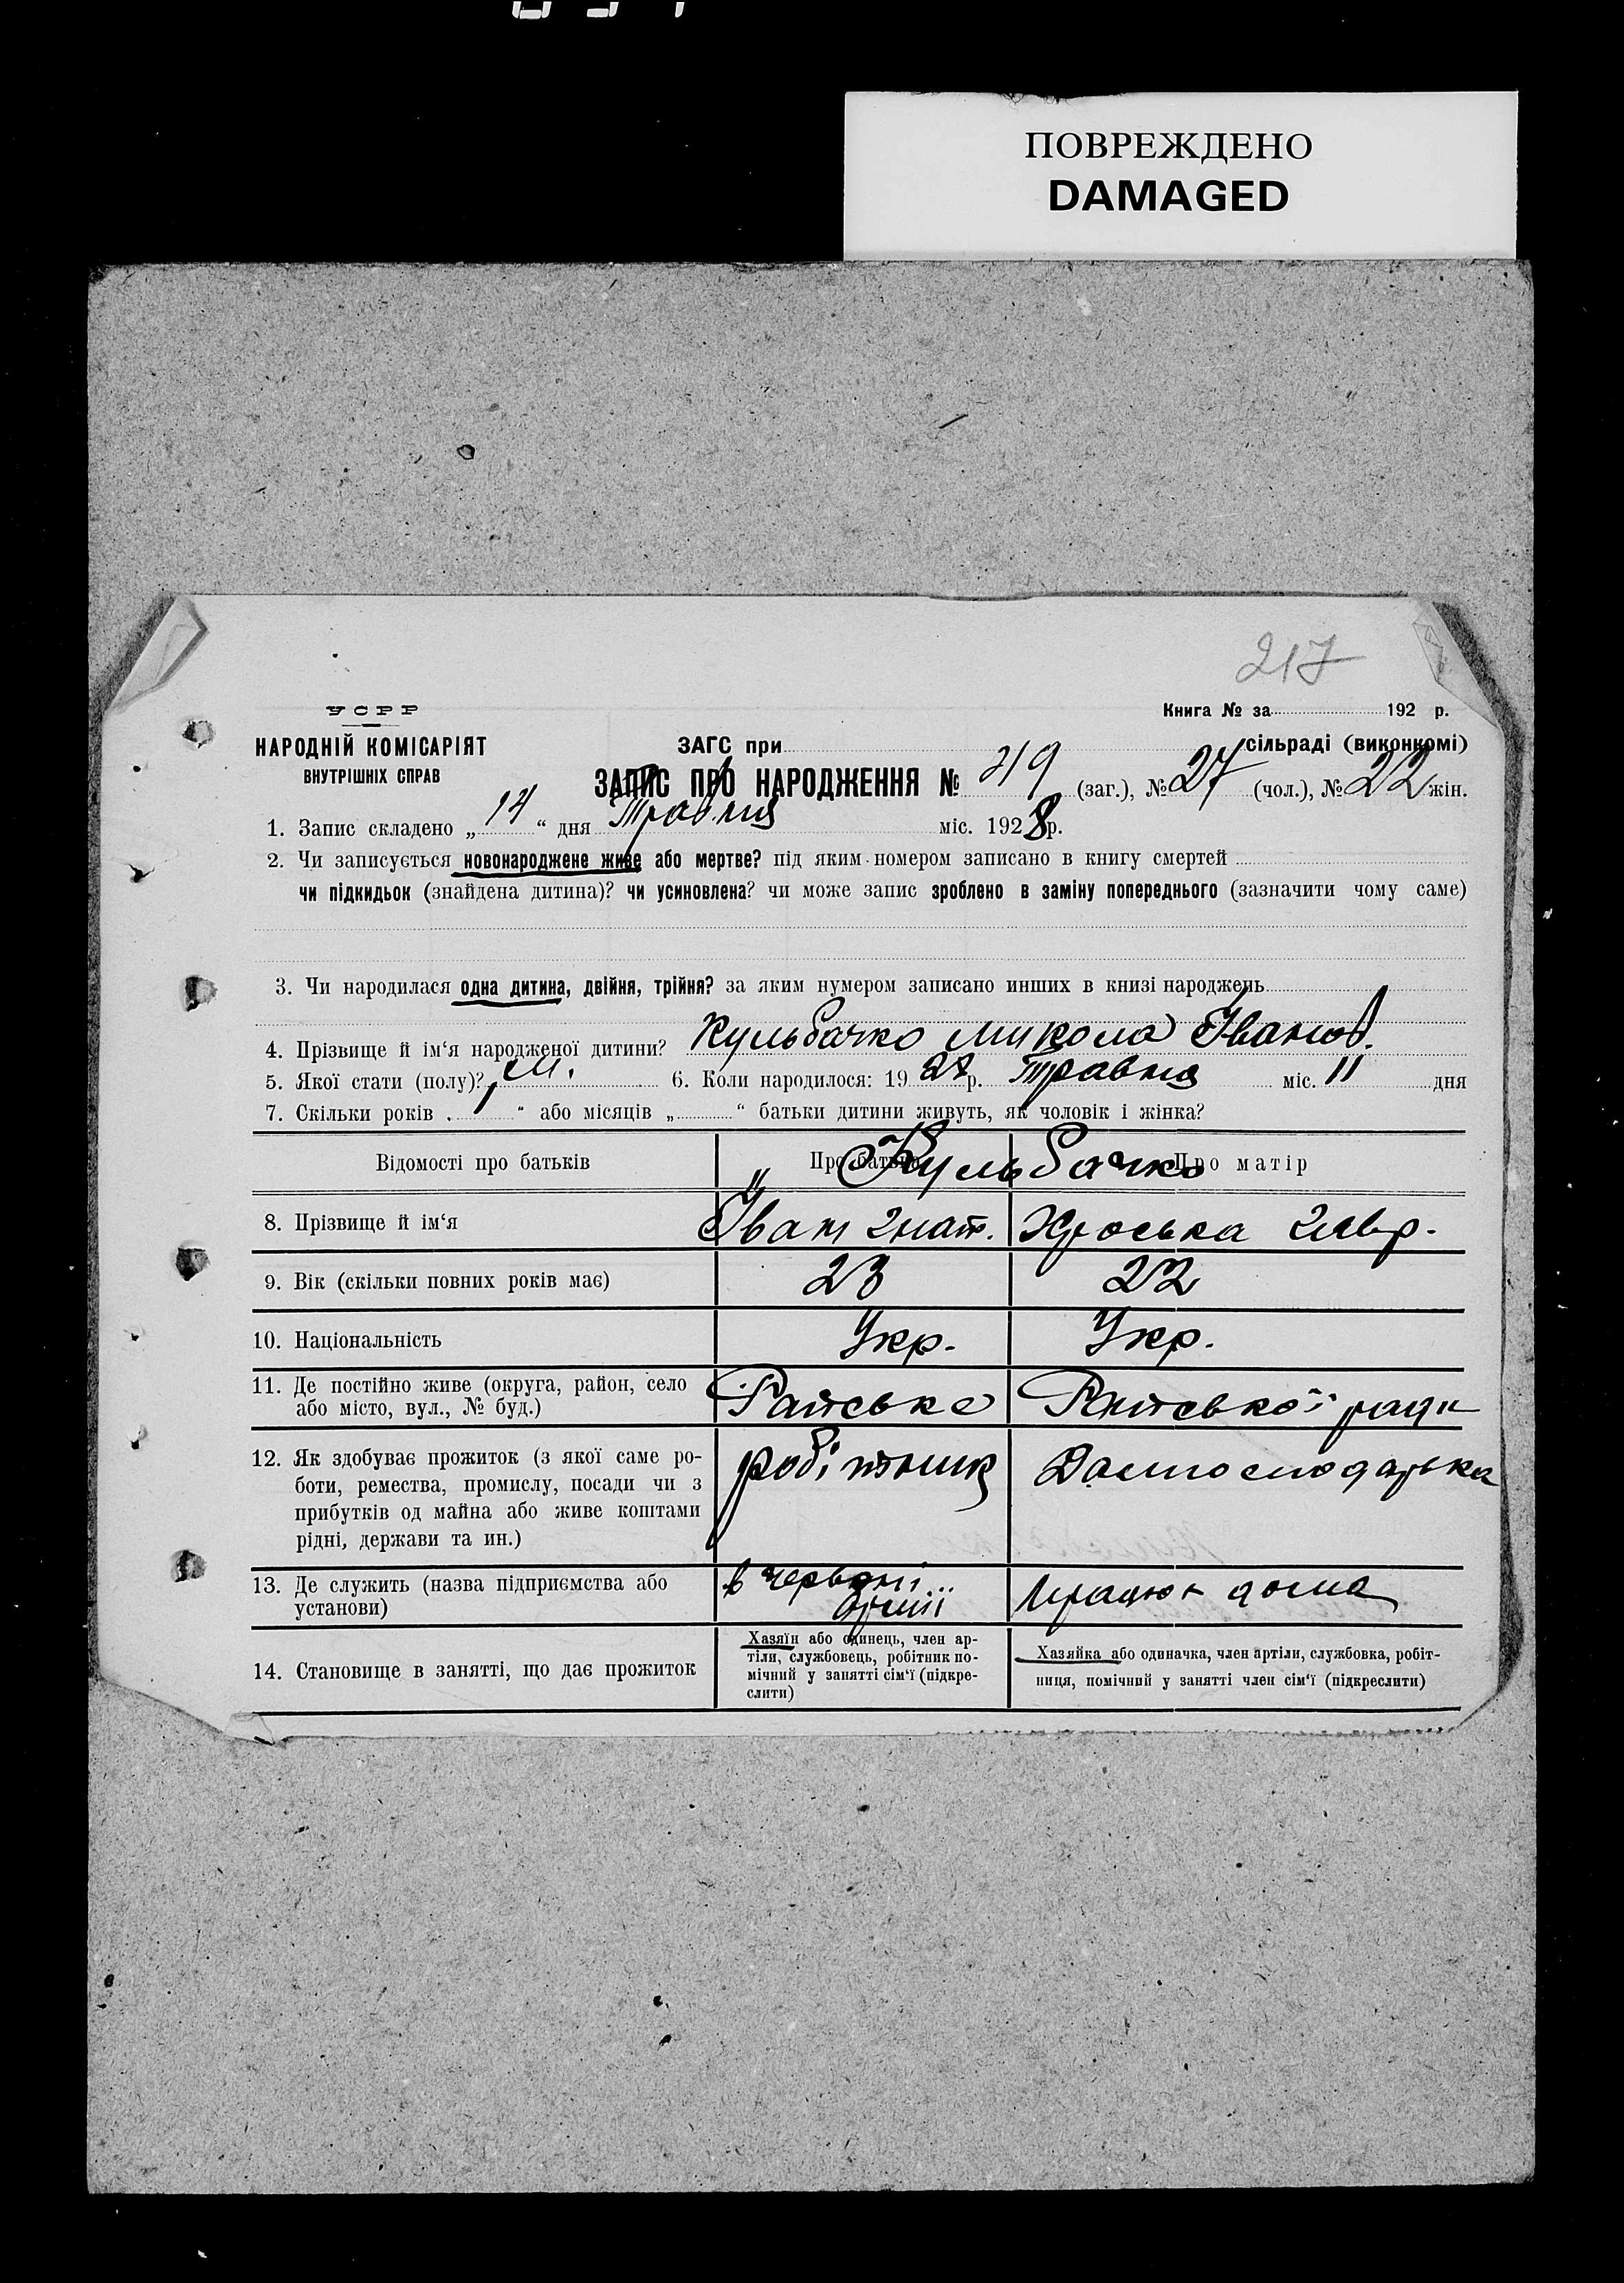 ПОВРЕЖДЕНО
DAMAGED
217
УСРР
Книга № за 192 р.
НАРОДНІЙ КОМІСАРІЯТ
ВНУТРІШНІХ СПРАВ
ЗАГС при сільраді (виконкомі)
ЗАПИС ПРО НАРОДЖЕННЯ № 49 (заг.), № 27 (чол.), № 22 жін.
1. Запис складено „ 14 “ дня Травня міс. 1928 р.
2. Чи записується новонароджене живе або мертве? під яким номером записано в книгу смертей
чи підкидьок (знайдена дитина)? чи усиновлена? чи може запис зроблено в заміну попереднього (зазначити чому саме)
3. Чи народилася одна дитина, двійня, трійня? за яким нумером записано инших в книзі народжень
4. Прізвище й ім‘я народженої дитини? Кульбачко Микола Іванов.
5. Якої стати (полу)? Ч.М. 6. Коли народилося: 19 28 р. Травня міс. 11 дня
7. Скільки років „ “ або місяців „ “ батьки дитини живуть, як чоловік і жінка?
Відомості про батьків Про батька Про матір
Кульбачко
8. Прізвище й ім‘я Іван Гнат.
9. Вік (скільки повних років має) 23 22
10. Національність Укр. Укр.
11. Де постійно живе (округа, район, село
або місто, вул., № буд.) ради
12. Як здобуває прожиток (з якої саме ро-
боти, ремества, промислу, посади чи з
прибутків од майна або живе коштами
рідні, держави та ин.)
робітник
13. Де служить (назва підприємства або
установи)
в червоні
армії
працює дома
14. Становище в занятті, що дає прожиток
Хазяїн або одинець, член ар-
тіли, службовець, робітник по-
мічний у занятті сім‘ї (підкре-
слити)
Хазяйка або одиначка, член артіли, службовка, робіт-
ниця, помічний у занятті член сім‘ї (підкреслити)